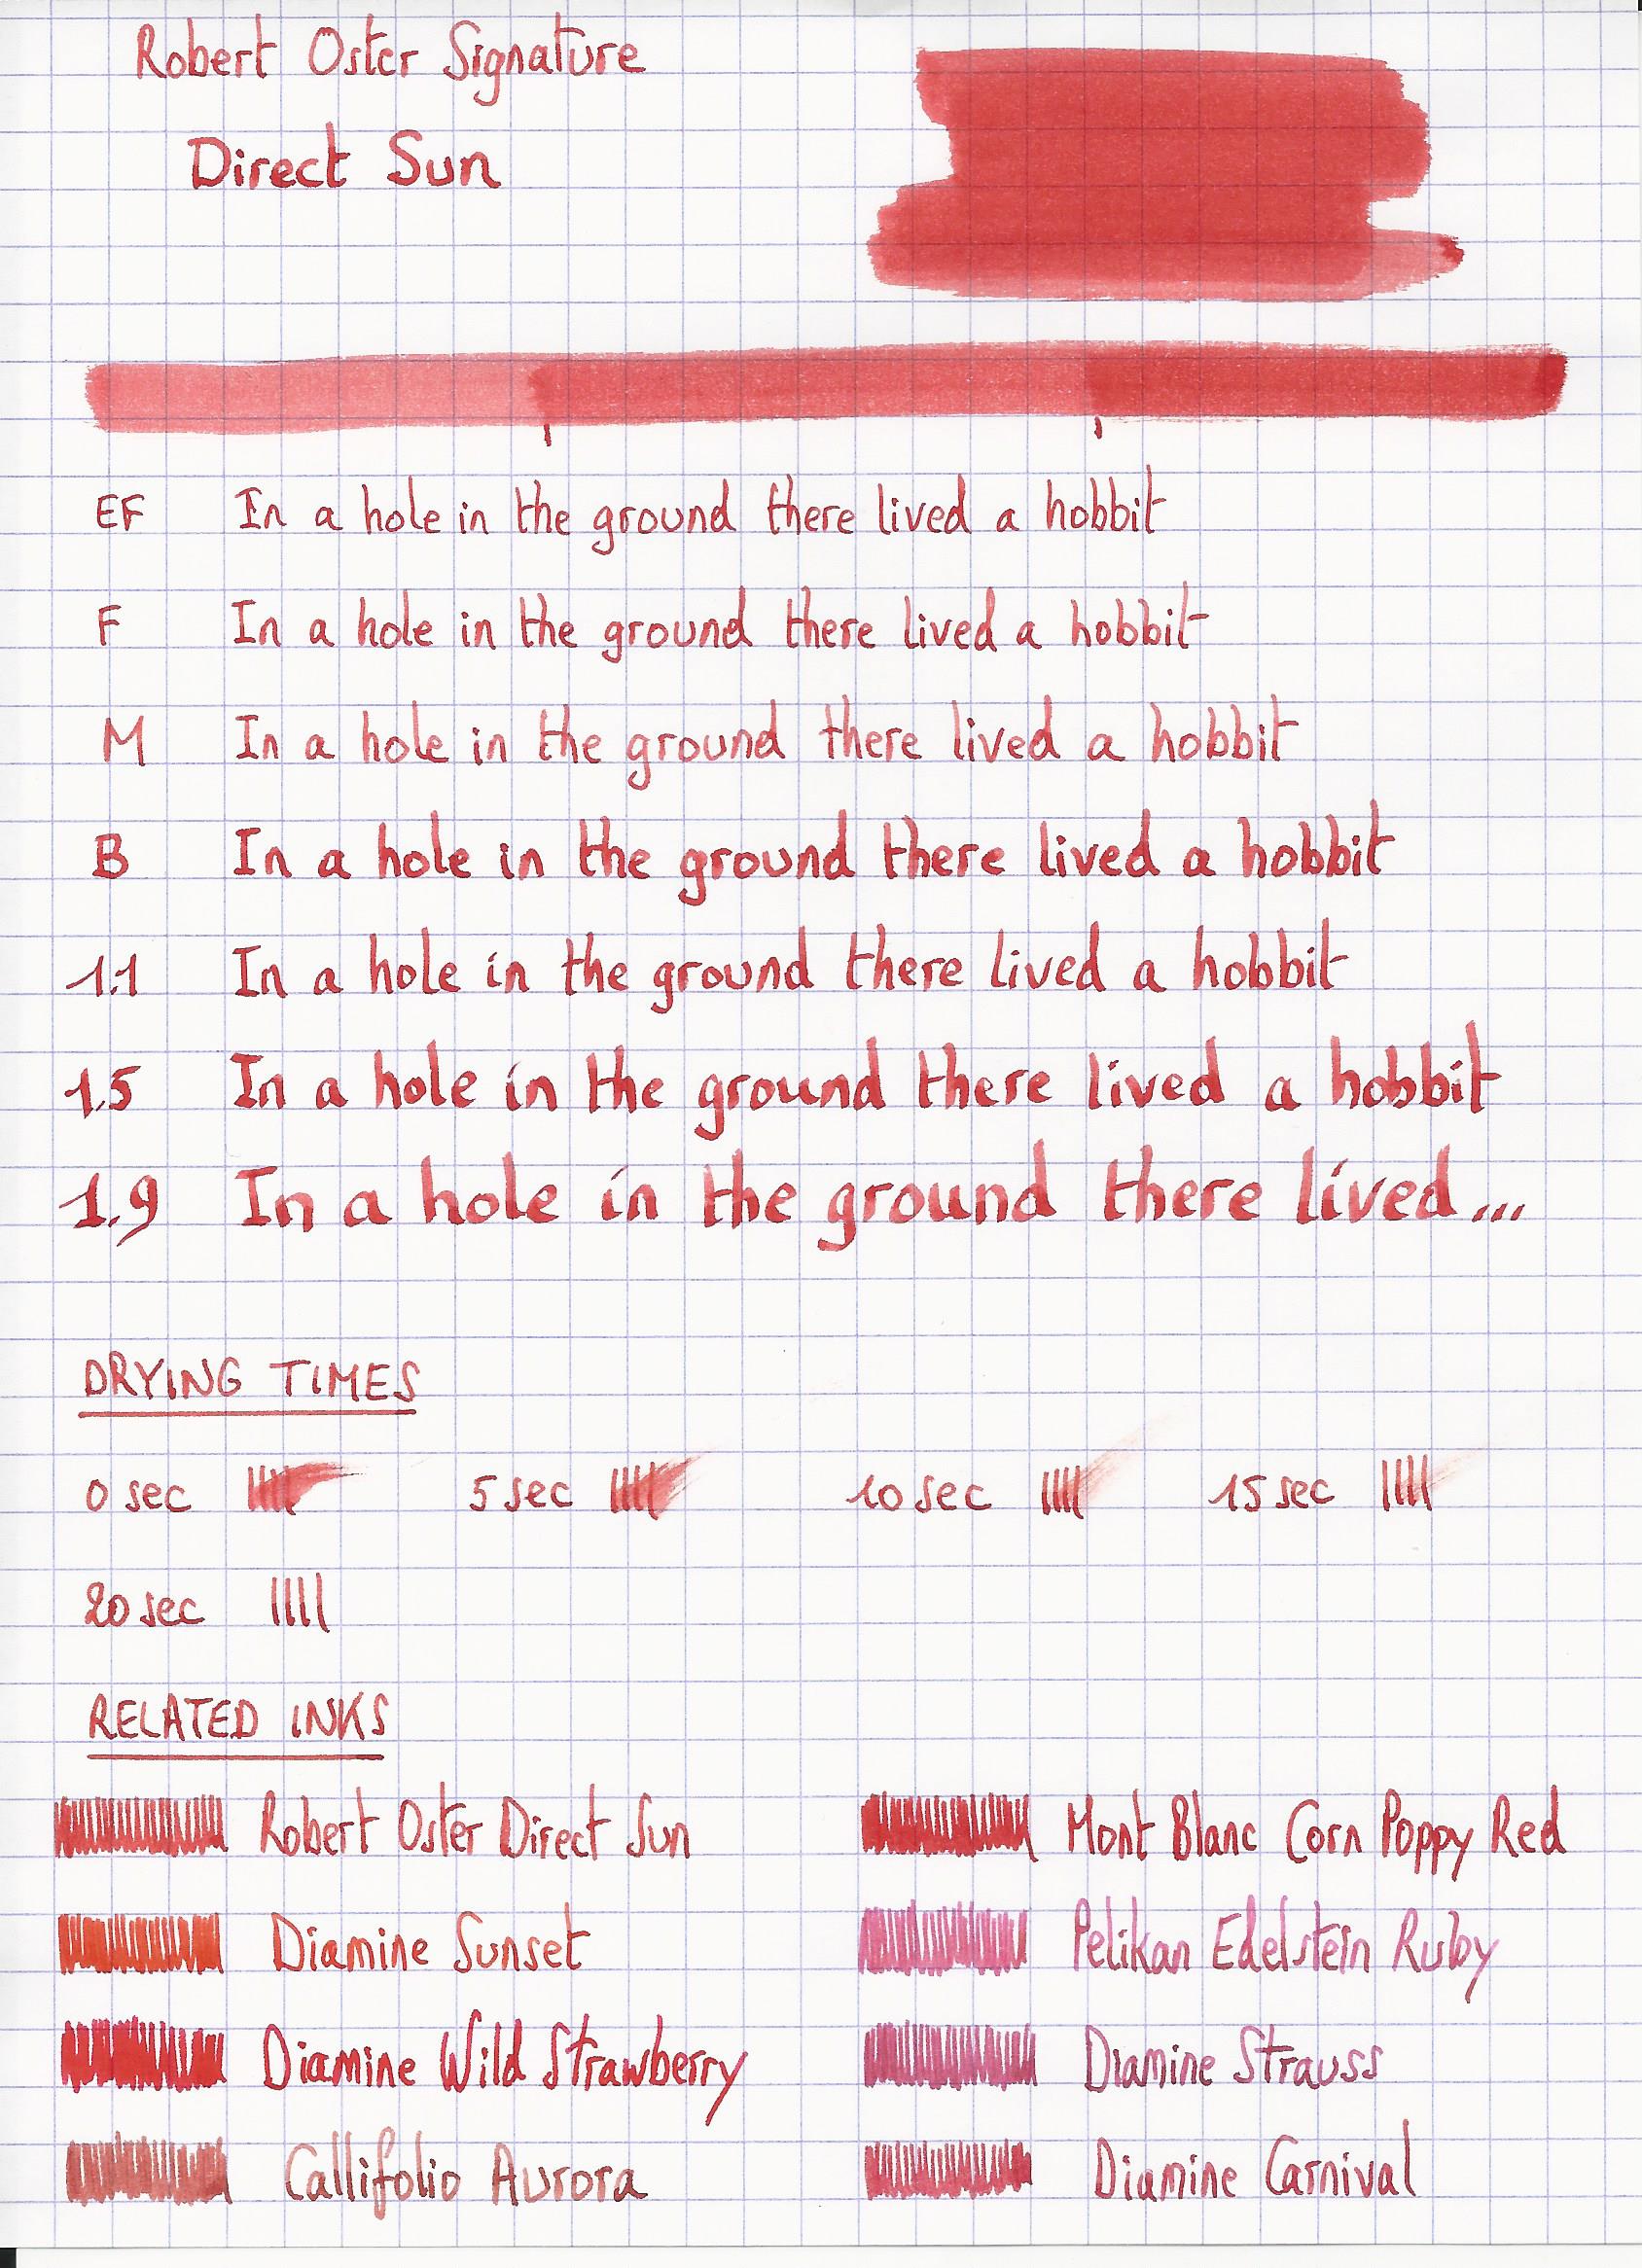 Robert Oster Signature
Direct Sun
EF In a hole in the ground there lived a hobbit
F In a hole in the ground there lived a hobbit
M In a hole in the ground there lived a hobbit
B In a hole in the ground there lived a hobbit
1.1 In a hole in the ground there lived a hobbit
1.5 In a hole in the ground there lived a hobbit
1.9 In a hole in the ground there lived...
DRYING TIMES
0 sec 5 sec 10 sec 15 sec
20 sec
RELATED INKS
Robert Oster Direct Sun Mont Blanc Corn Poppy Red
Diamine Sunset Pelikan Edelstein Ruby
Diamine Wild Strawberry Diamine Strauss
Callifolio Aurora Diamine Carnival